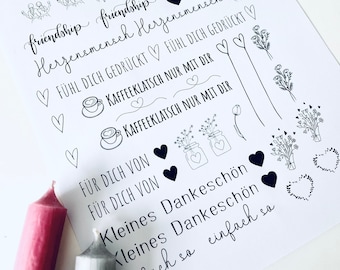 friendship friendship
Herzensmensch Herzensmensch
FÜHL DICH GEDRÜCKT FÜHL DICH GEDRÜCKT
KAFFEEKLATSCH NUR MIT DIR
KAFFEEKLATSCH NUR MIT DIR
FÜR DICH VON
FÜR DICH VON
Kleines Dankeschön
Kleines Dankeschön
einfach so